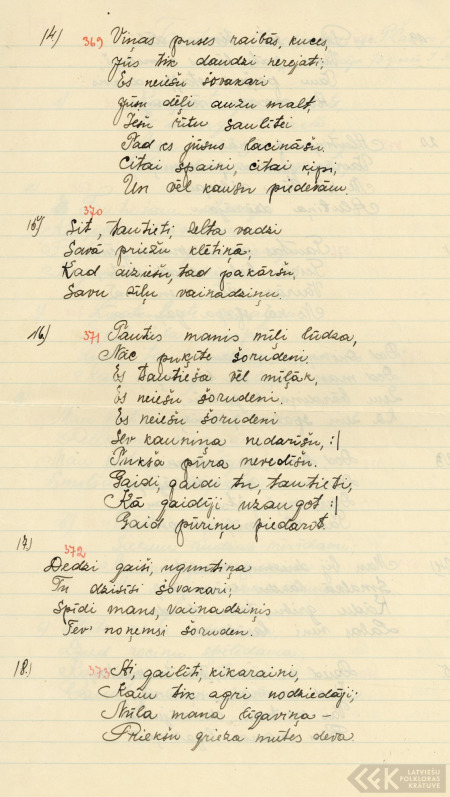 14) 369 Viņas puses raibās, kuces,
Jūs tik daudzi nerejati;
Es neiešu šovakari
Jūsu dēļi auzu malt,
Iešu rītu saulītei
Tad es jūsus lacināšu.
Citai spaini, citai ķipi,
Un vēl kausu piedevām.
15) 370 Sit, tautieti, zelta vadzi
Savā priežu klētiņā;
Kad aiziešu, tad pakāršu,
Savu zīļu vainadziņu.
16) 371 Tautas manis mīļi lūdza,
Nāc puķīte šorudeni
Es tautieša vēl mīļāk,
Es neiešu šorudeni.
Es neiešu šorudeni
Sev kauniņa nedarīšu, :|
Tukša pūra nevedīšu.
Gaidi, gaidi tu, tautieti,
Kā gaidīji uzaugot :|
Gaid pūriņu piedarot.
17) 372
Dedzi gaiši, uguntiņa
Tu dzisīsi šovakari;
Spīdi mans, vainadziņis
Tev' noņemsi šoruden.
18) 373 Ai, gailīti, kikaraini,
Kam tik agri nodziedāji;
Mīļa mana līgaviņa –
Priekšu grieza mutes deva.
LATVIEŠU
FOLKLORAS
KRĀTUVE